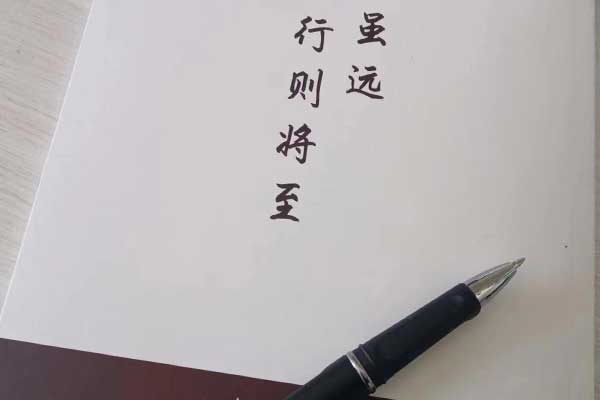 虽远
行则将至